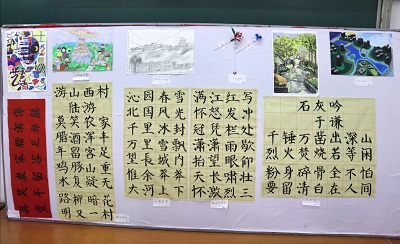 游山西村
陆游
莫笑农家
腊酒浑丰
年留客足
鸡豚山重
水复疑无
路柳暗花
明又一村
沁园春雪
北国风光
千里冰封
万里雪飘
望长城内
惟余莽莽
大河上下
满江红写
怀怒发冲
冠凭栏处
潇潇雨歇
抬望眼仰
天长啸壮
怀激烈三
石灰吟
于谦
千锤万凿出深山
烈火焚烧若等闲
粉身碎骨全不怕
要留清白在人间